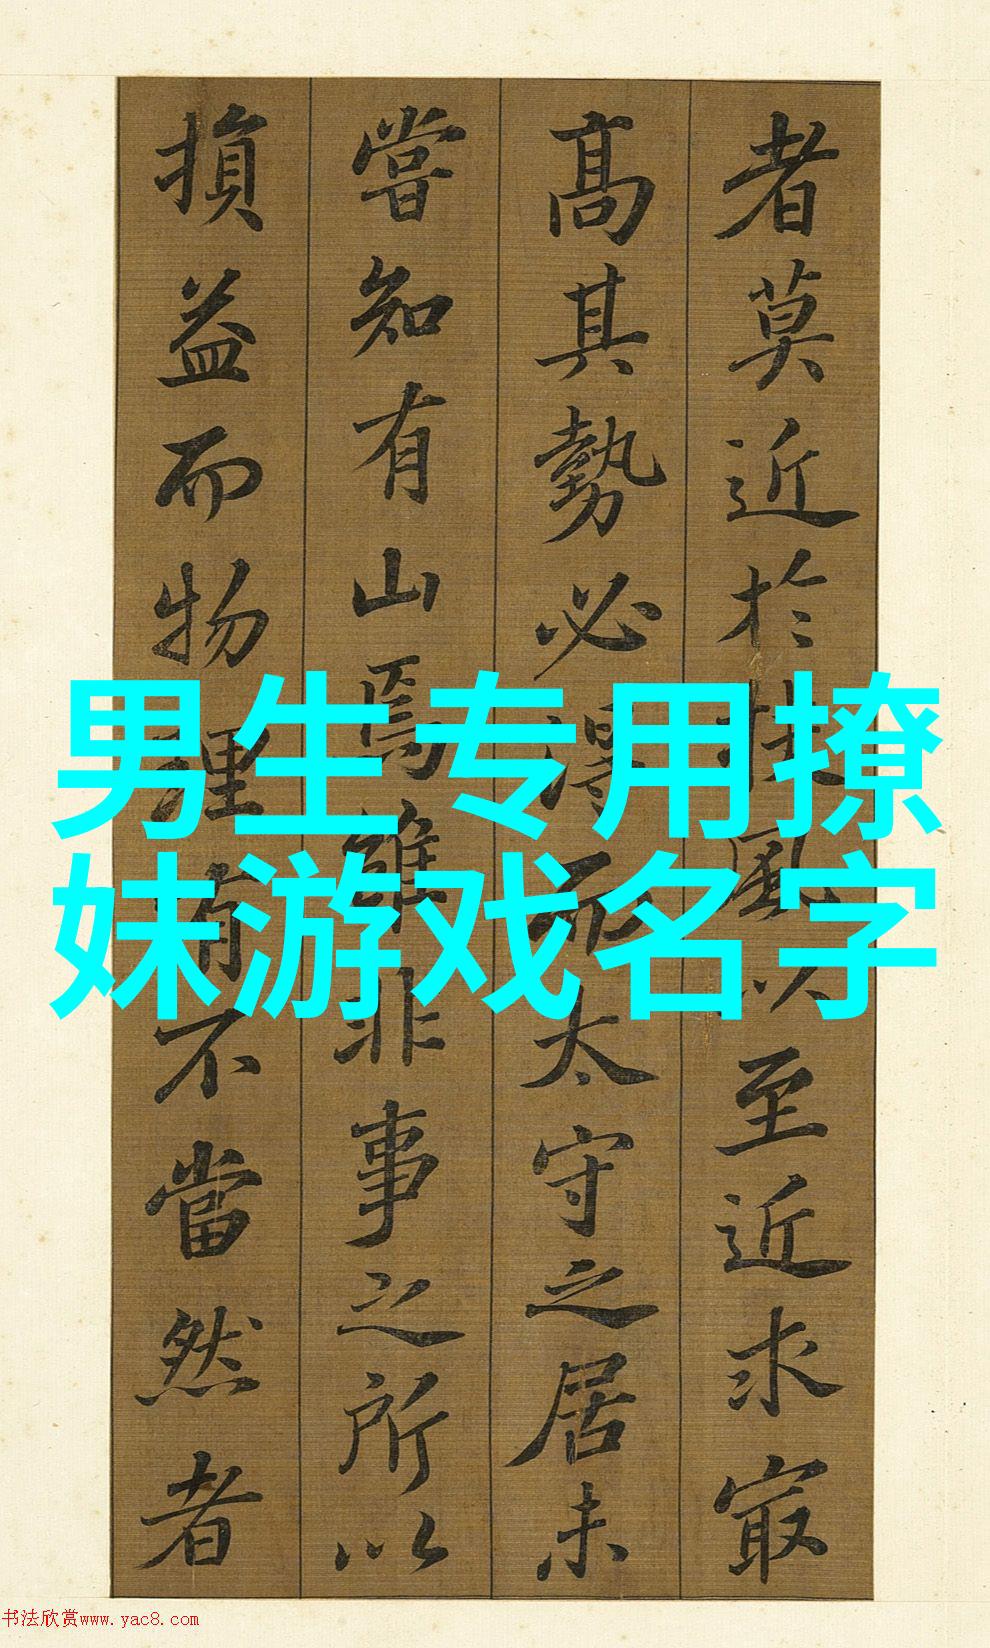 者莫近於扶風以至近求㝡
髙其勢必得而太守之居未
嘗知有山焉雖非事之所以
損益而物理有不當然者
男生专用撩
妹游戏名字
书法欣赏www.yac8.com